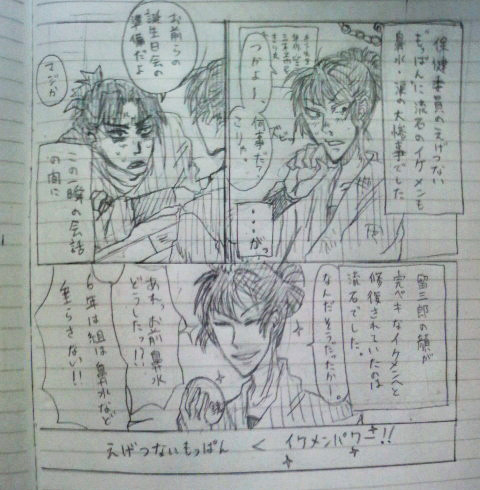 保健委員のえげつない
もっぱんに流石のイケメンも
鼻水・涙の大惨事でした
つかよー、
何事だ?
こりゃ。
…がっ
お前らの
誕生日会の
準備だよ
マジか
この瞬の会話
の間に
留三郎の顔が
完ペキなイケメンへと
修復されていたのは
流石でした。
なんだそうだったかー。
あれっお前鼻水
どうしたっ!?
6年は組は鼻水など
垂らさない!!
えげつないもっぱん < イケメンパワー!!